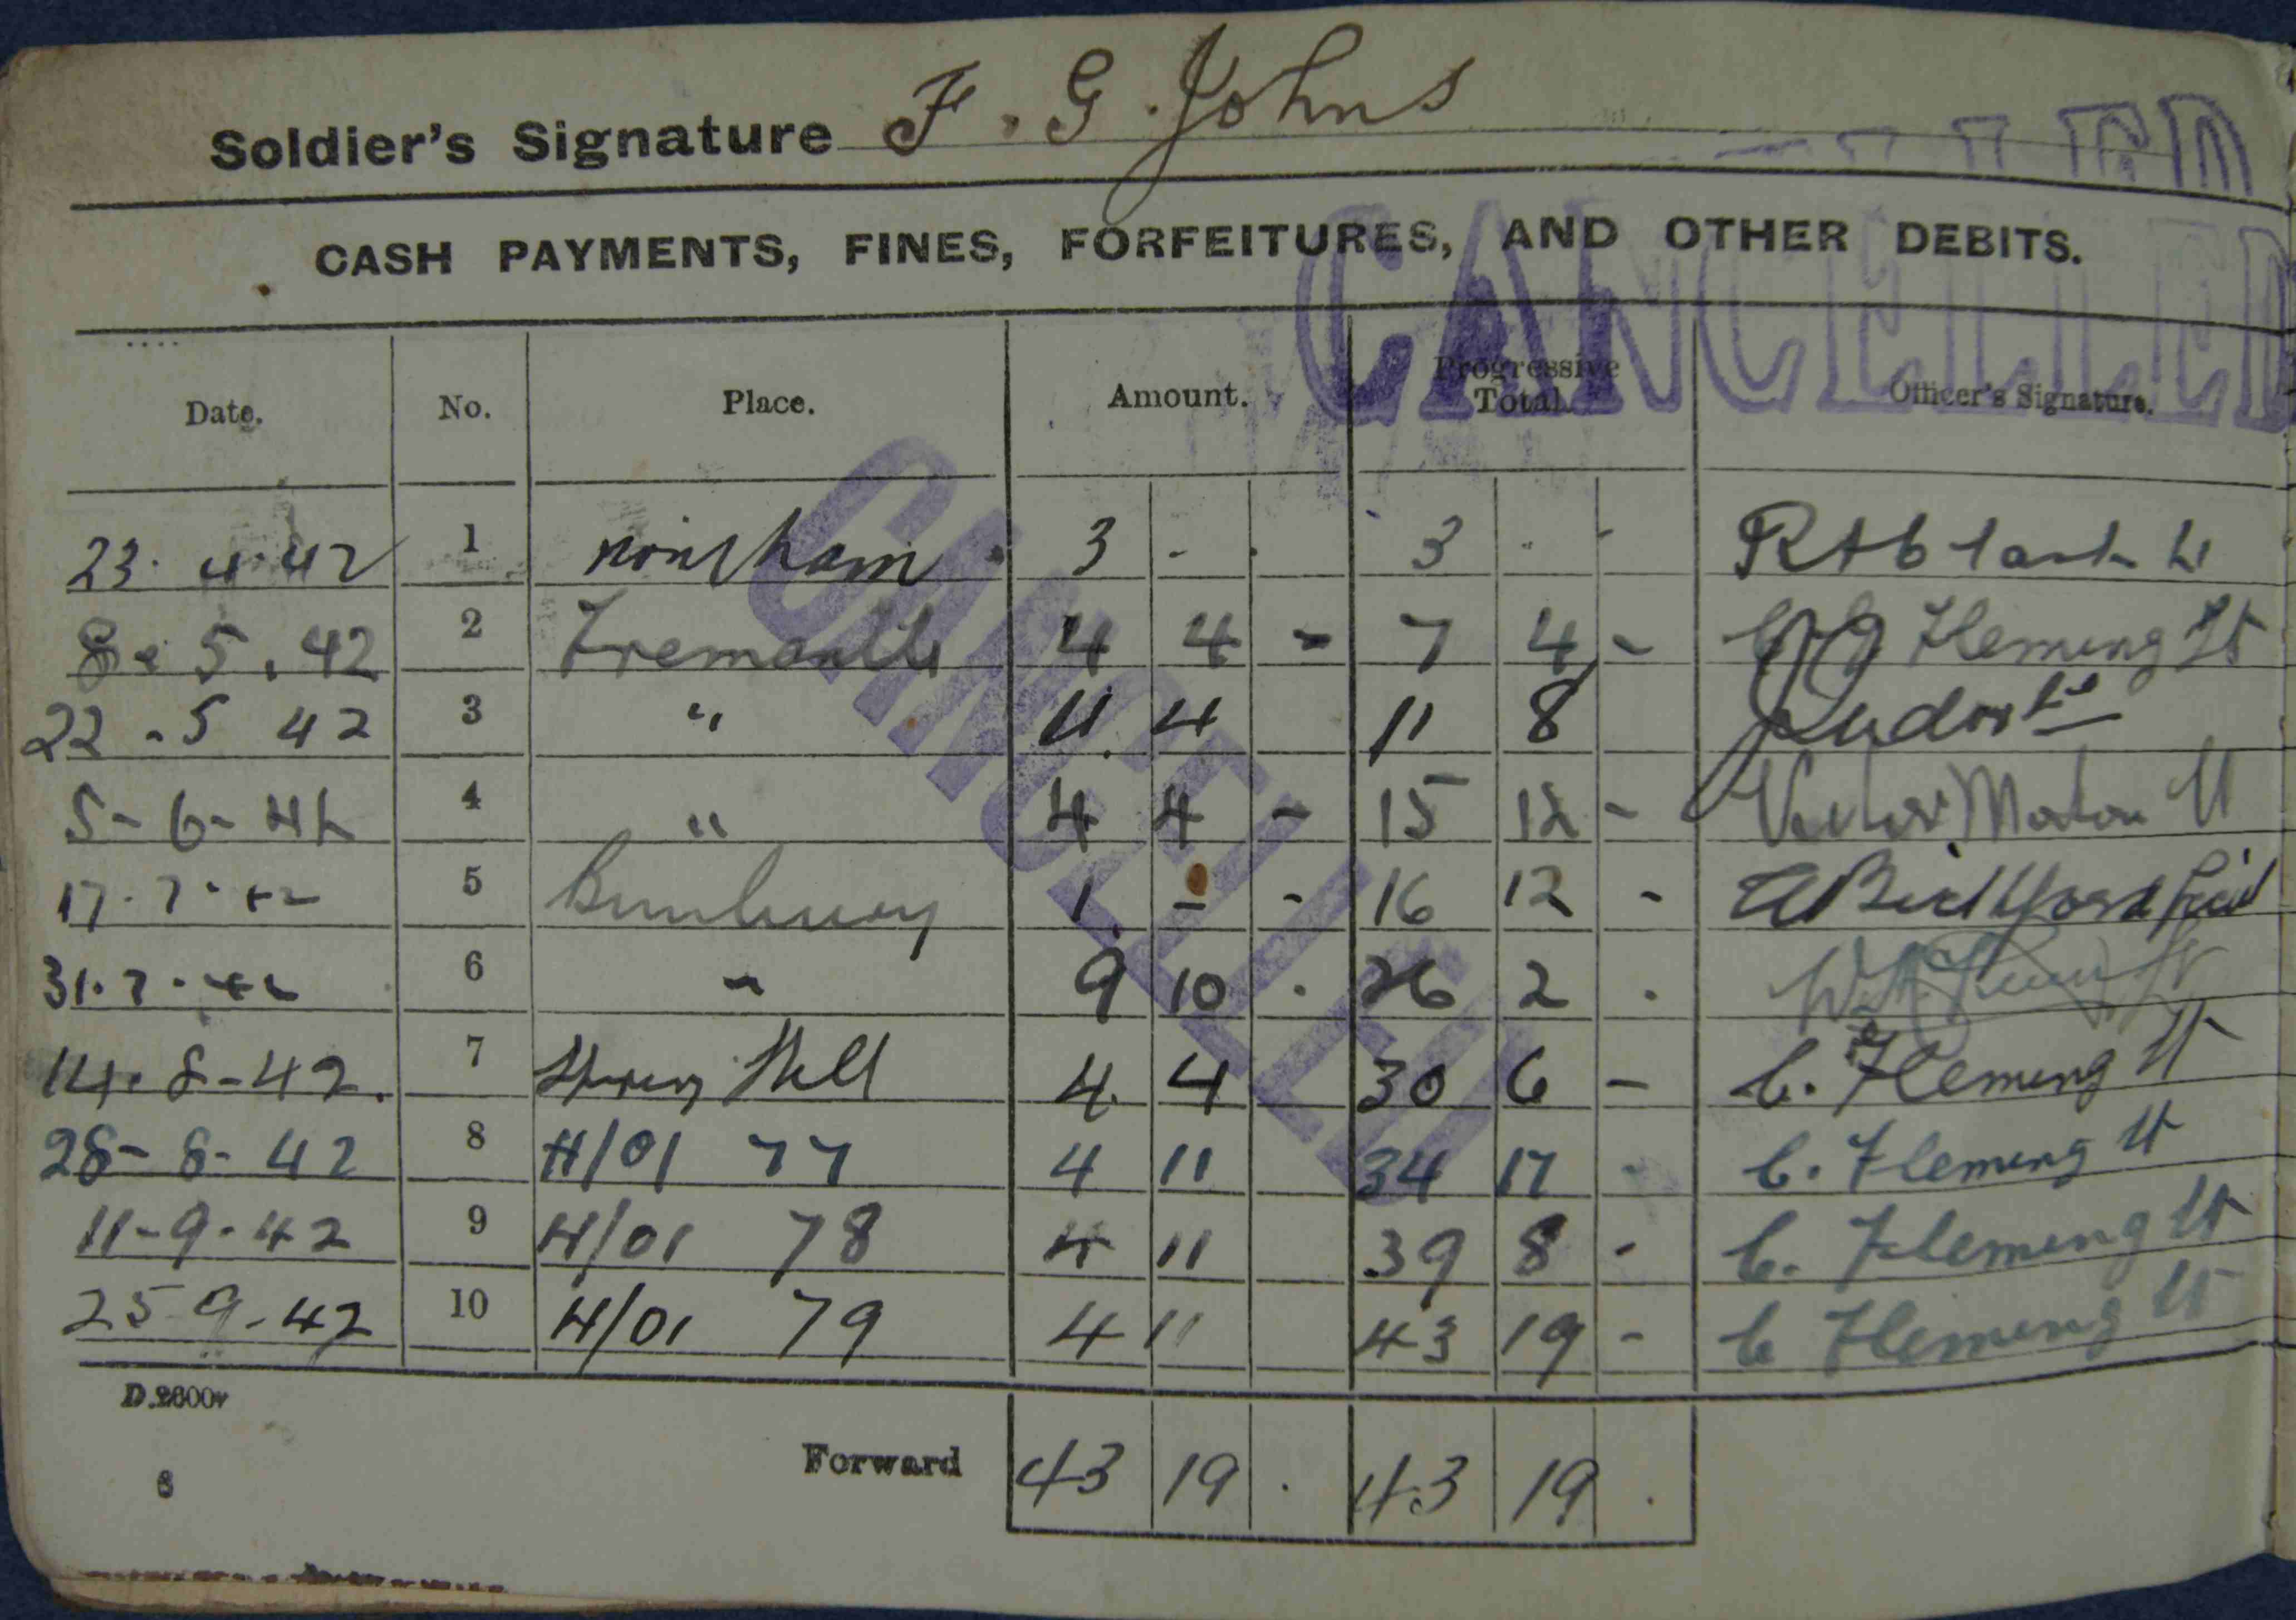 Soldier's Signature F. G. Johns
CASH PAYMENTS, FINES, FORFEITURES, AND OTHER DEBITS.
CANCELLED
Date. No. Place. Amount. Progressive Total. Officer's Signature.
CANCELLED
23. 4. 42 1 Northam 3 - . 3 - -
8. 5. 42 2 Fremantle 4 4 - 7 4 - Fleming Lt
22 - 5 42 3 " 4. 4 11 8 Lt
5 - 6 - 42 4 " 4 4 - 15 12 - Lt
17. 7. 42 5 Bunbury 1 - - 16 12 -
31. 7. 42 6 " 9 10 . 26 2 .
14. 8 - 42. 7 Hill 4. 4 30 6 - C. Fleming Lt
28 - 8 - 42 8 H/01 77 4 11 34 17 - C. Fleming Lt
11 - 9 - 42 9 H/01 78 4 11 39 8 - C. Fleming Lt
25 9 - 42 10 H/01 79 4 11 43 19 - C Fleming Lt
D.2600v
Forward 43 19 . 43 19 .
6